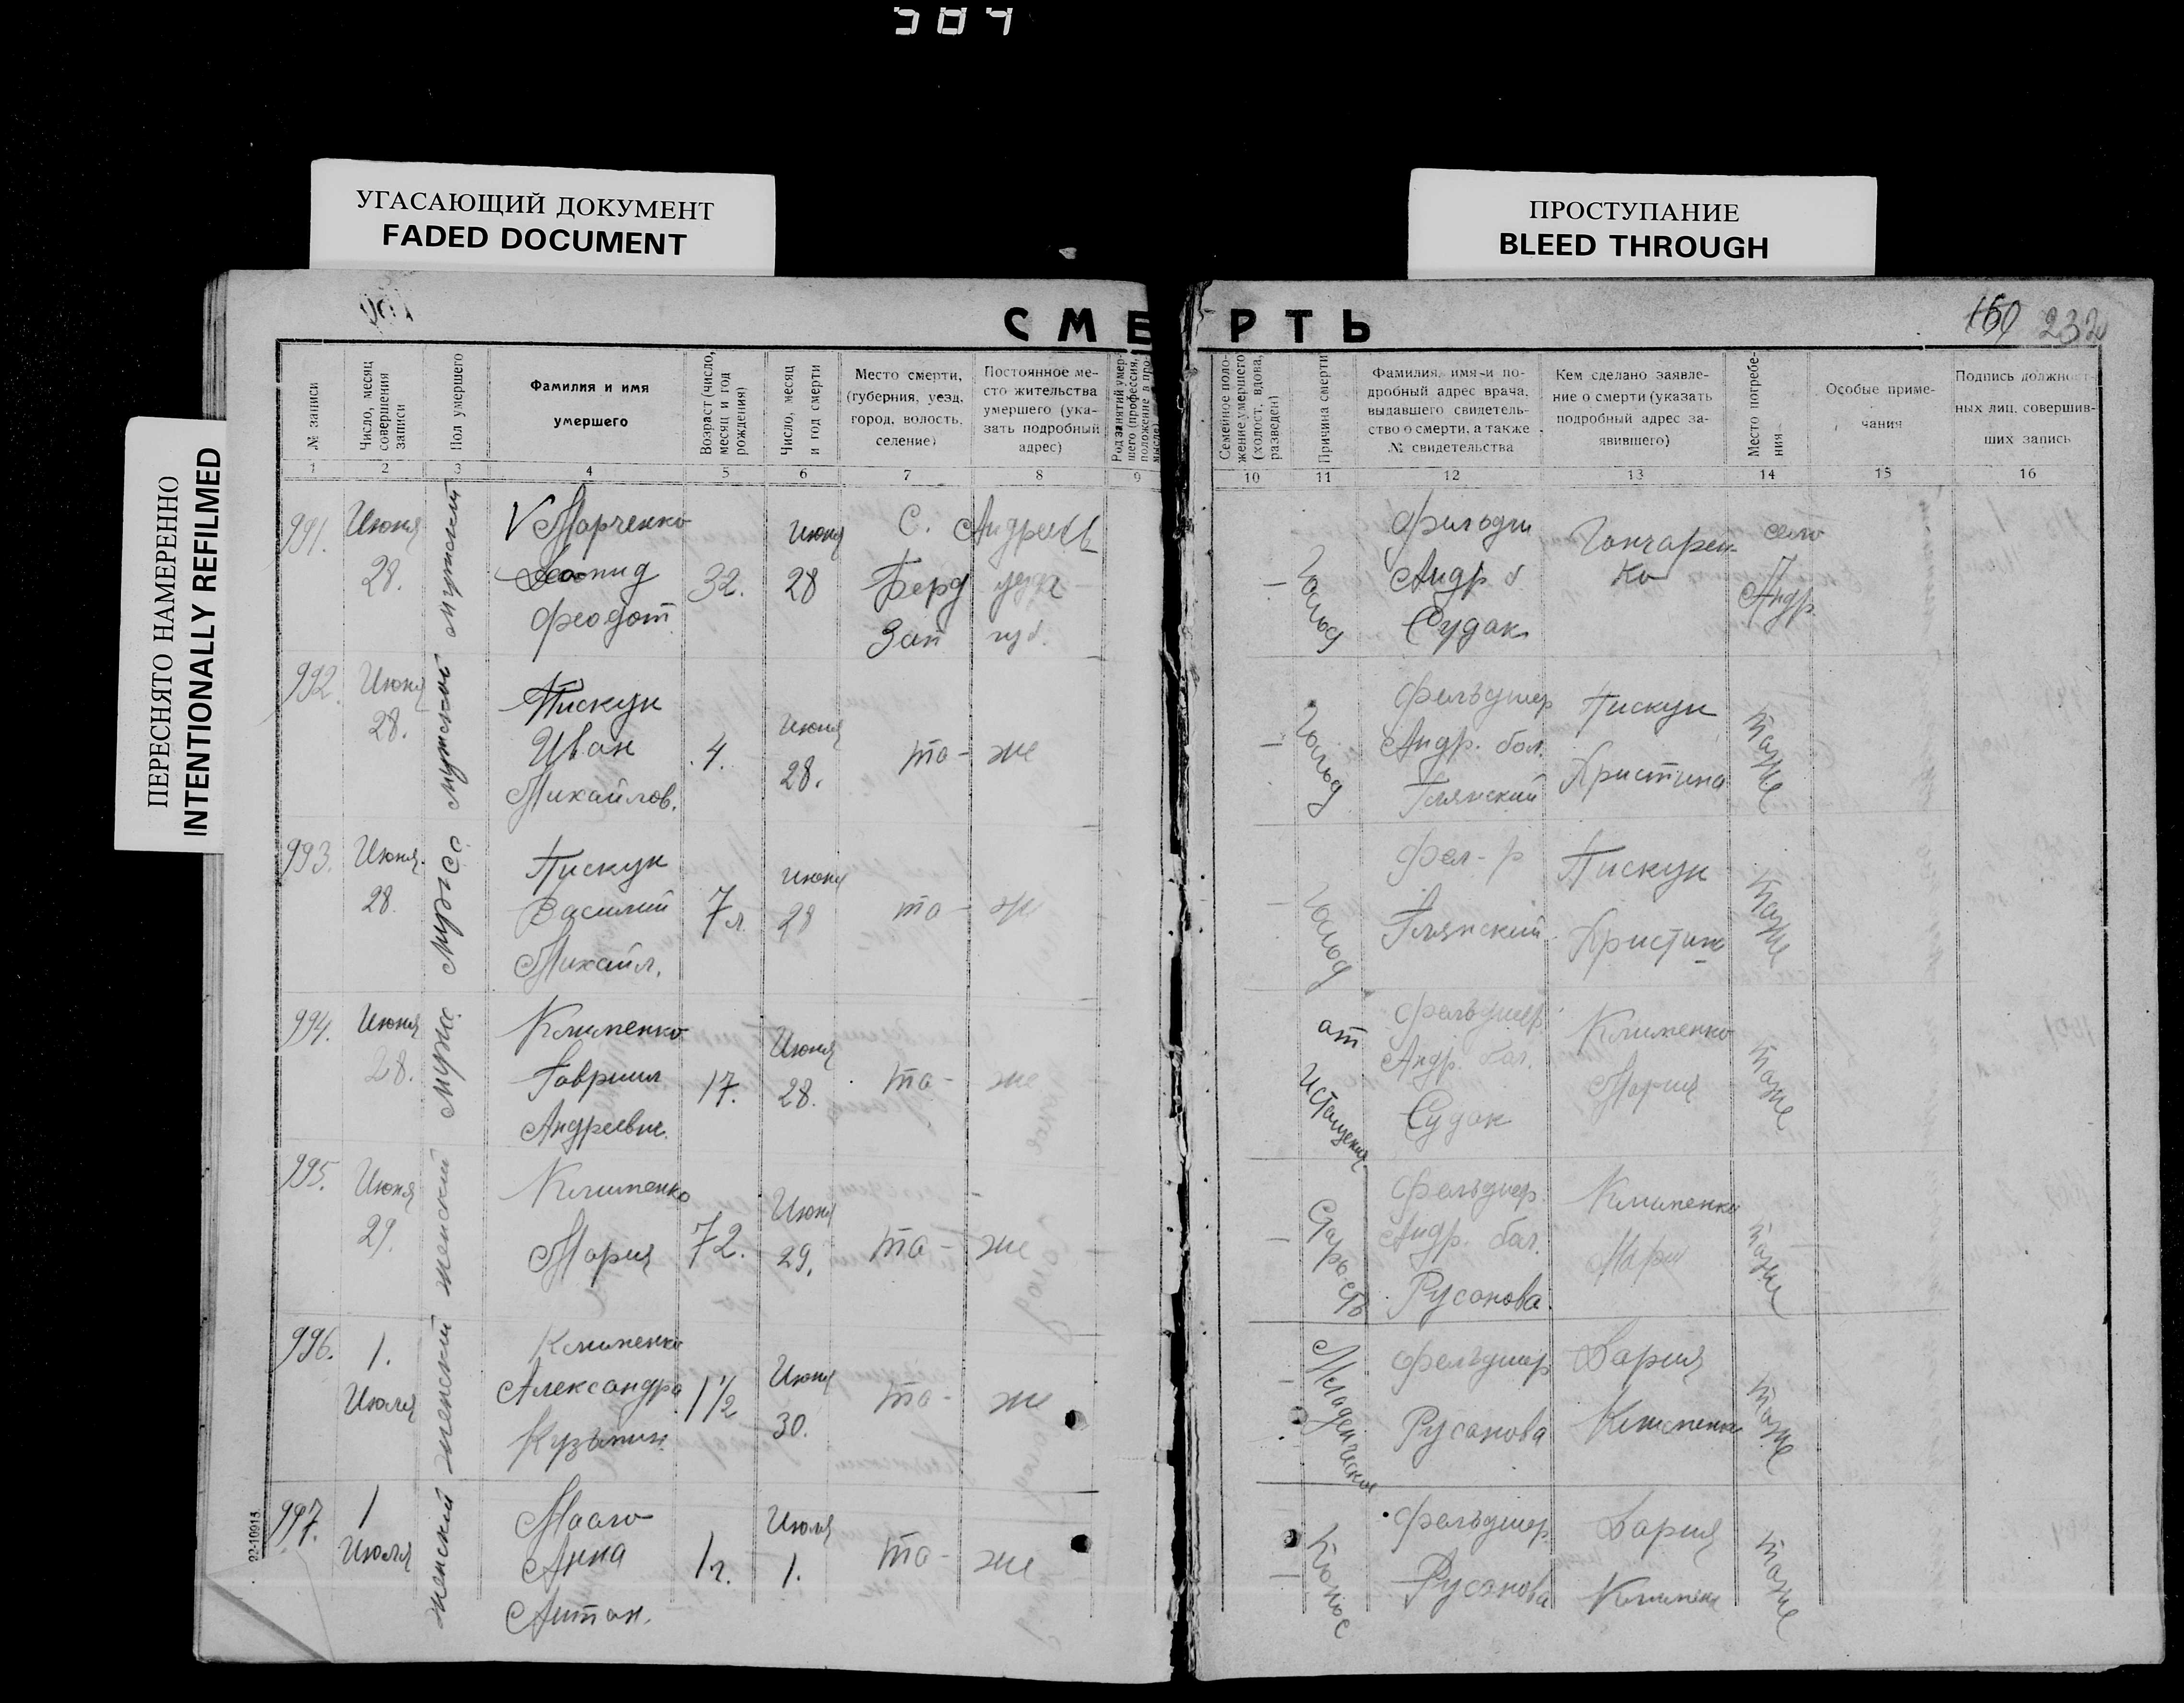 504
УГАСАЮЩИЙ ДОКУМЕНТ
FADED DOCUMENT
ПРОСТУПАНИЕ
BLEED THROUGH
ПЕРЕСНЯТО НАМЕРЕННО
INTENTIONALLY REFILMED
СМЕРТЬ
160 232
№ записи
Число, месяц совершения записи
Пол умершего
Фамилия и имя
умершего
Возраст (число, месяц и год рождения)
Число, месяц и год смерти
Место смерти, (губерния, уезд, город, волость, селение)
Постоянное место жительства умершего (указать подробный адрес)
Род занятий умершего (профессия, положение в промысле)
Семейное положение умершего (холост, вдова, разведен)
Причина смерти
Фамилия, имя и подробный адрес врача, выдавшего свидетельство о смерти, а также № свидетельства
Кем сделано заявление о смерти (указать подробный адрес заявившего)
Место погребения
Особые примечания
Подпись должностных лиц, совершивших запись
1 2 3 4 5 6 7 8 9 10 11 12 13 14 15 16
991. Июня 28. Мужский
√ Марченко
Леонид
Феодот
32. июня 28
С. Андреев
Берд уезда
Зап губ.
— Голод
Андр. б
Судак
Гончаренко
село
Андр.
992. Июня 28. Мужской
Пискун
Иван
Михайлов.
4. июня 28. то-же
— Голод
Фельдшер
Андр. бол.
Глянский
Пискун
Христина
тоже
993. Июня 28. Мужес
Пискун
Василий
Михайл.
7 л. июня 28 то-же
— Голод
Фел-р
Глянский
Пискун
Христина
тоже
994. Июня 28. Муже
Клименко
Гавриил
Андреевич.
17. Июня 28. то-же
от истощения
Фельдшер
Андр. бол.
Судак
Клименко
Мария
тоже
995. Июня 29. женский
Клименко
Мария
72. Июня 29. то-же
— Старость
Фельдшер.
Андр. бол.
Русанова.
Клименко
Мария
тоже
996. 1. Июля женский
Клименко
Александра
Кузьмин.
1 1/2 Июня 30. то-же
— Младенческая
Фельдшер
Русанова
Дария
Клименко
тоже
997. 1 Июля женский
Анна
Антон.
1 г. Июля 1. то-же
— Понос
Фельдшер.
Русанова
Дария
Клименко
тоже
22-10915